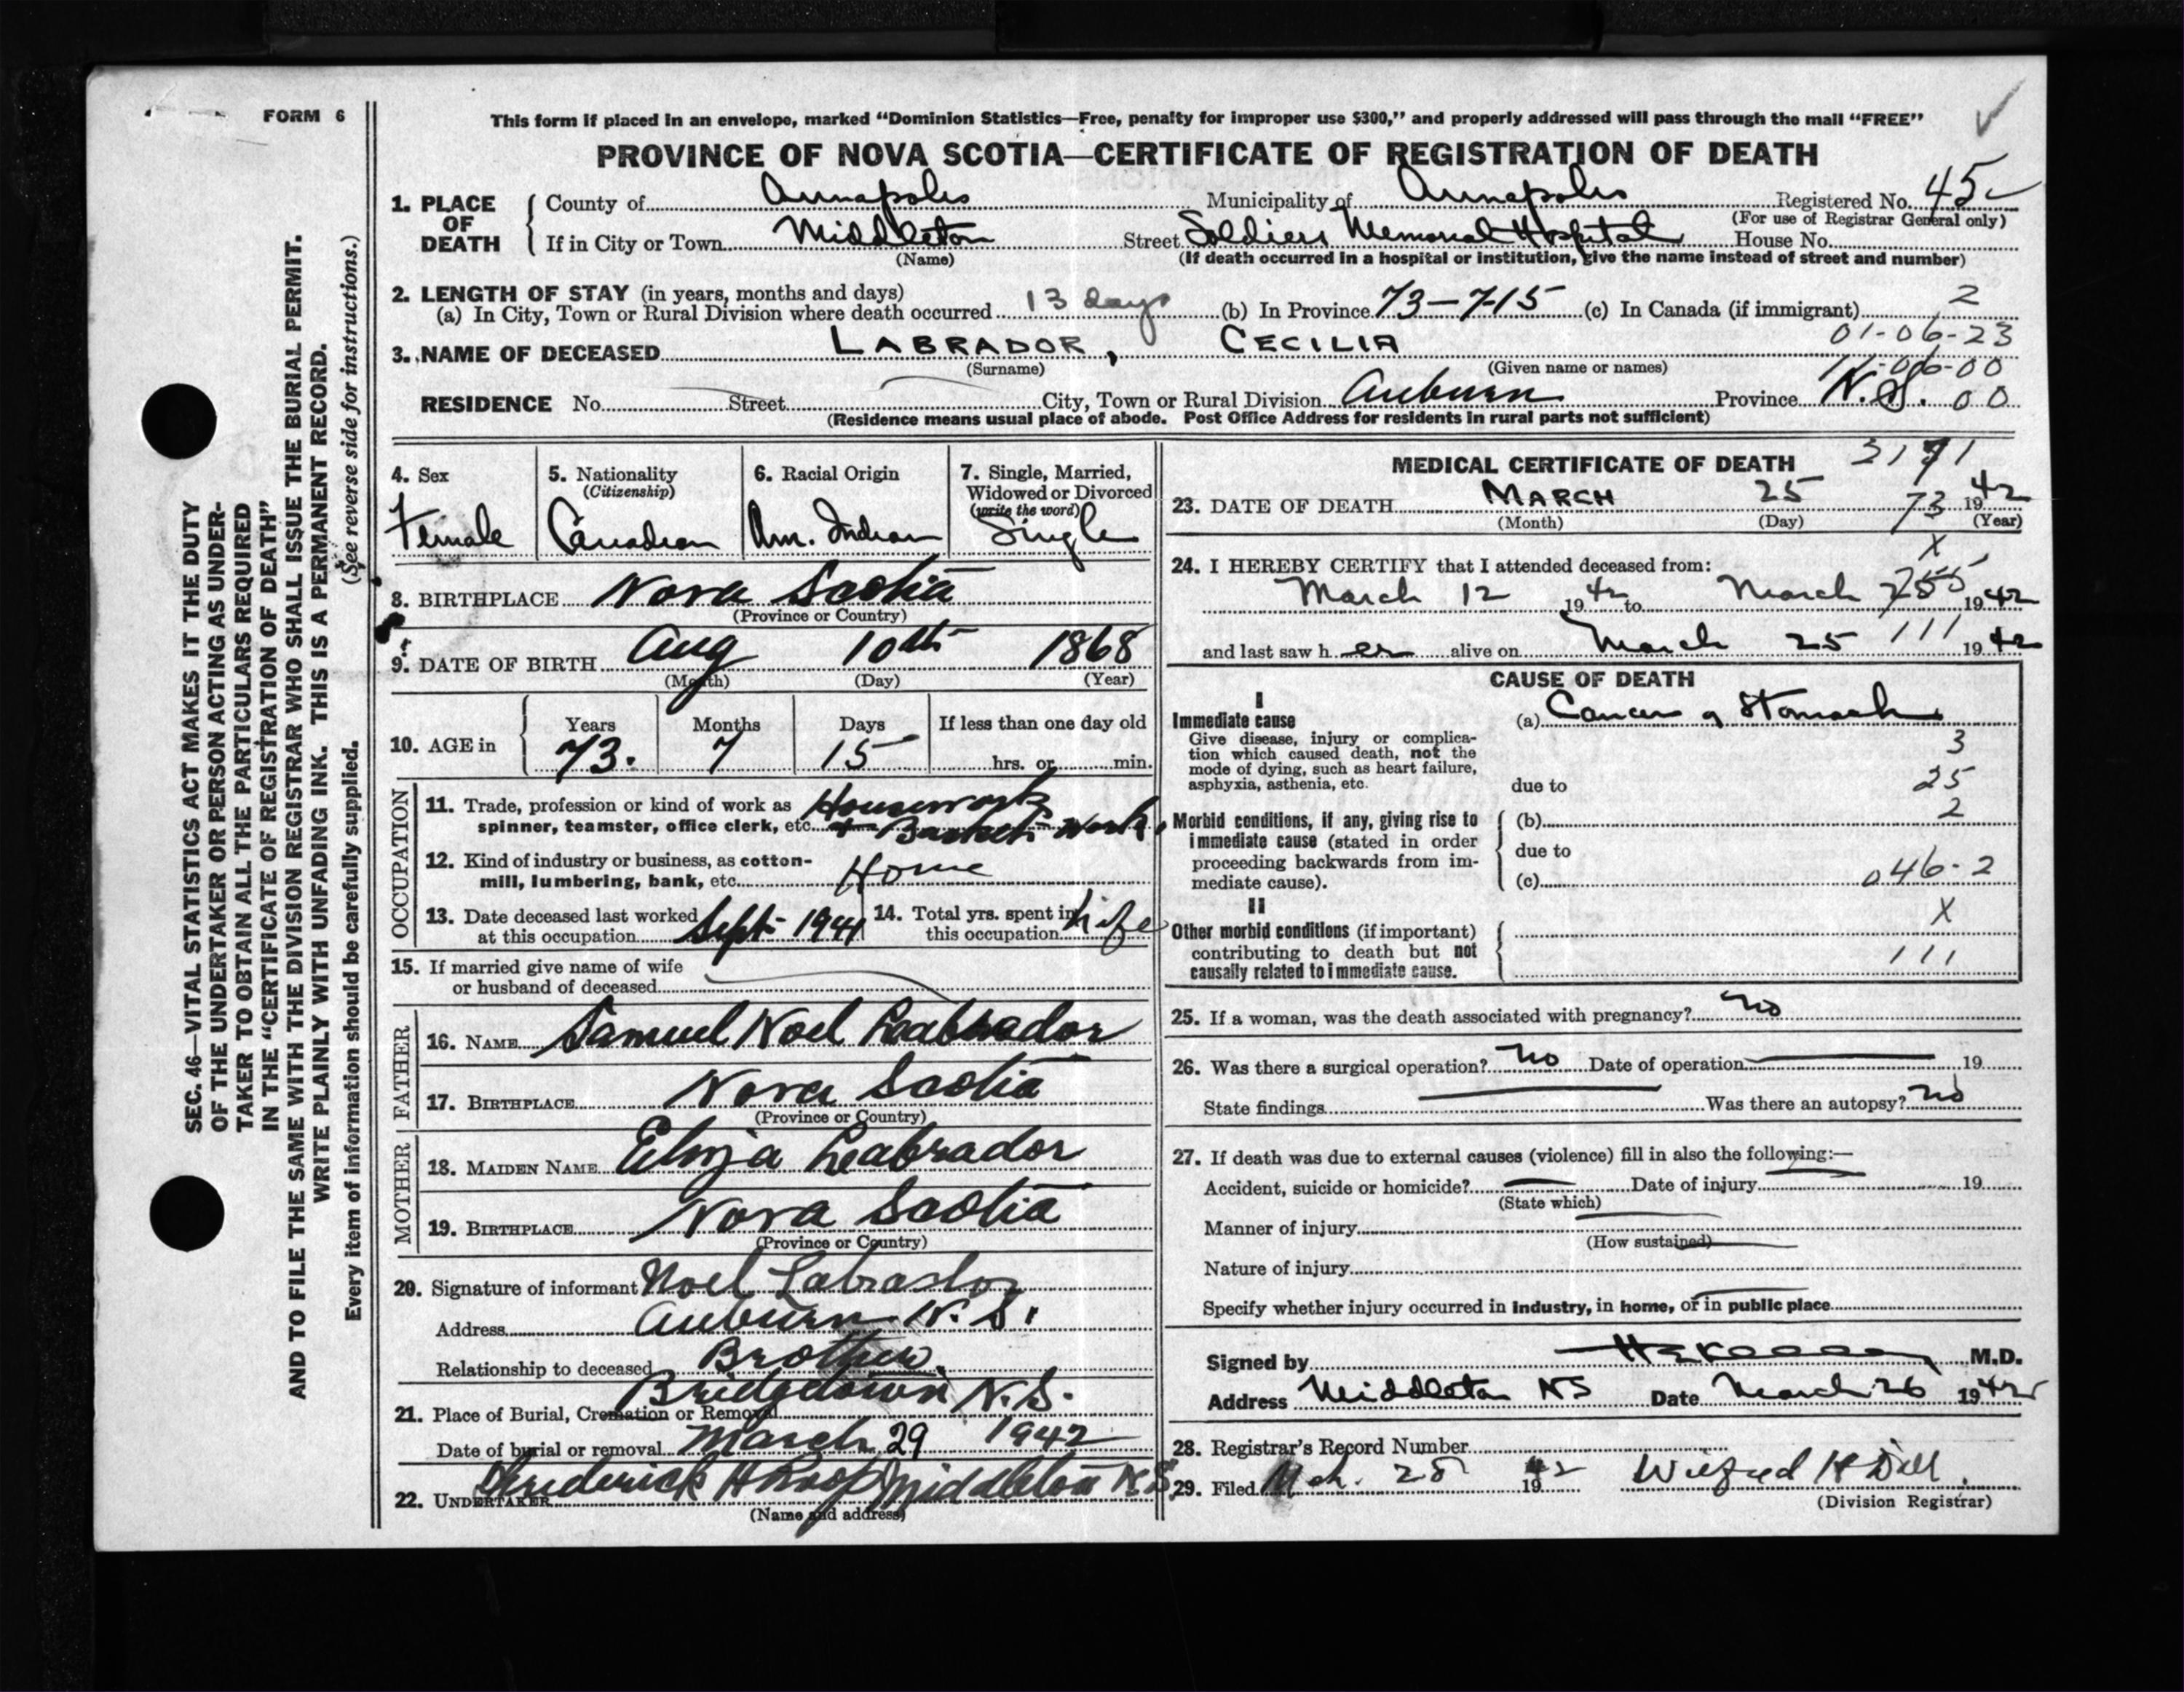 FORM 6
This form if placed in an envelope, marked "Dominion Statistics—Free, penalty for improper use $300," and properly addressed will pass through the mail "FREE"
PROVINCE OF NOVA SCOTIA—CERTIFICATE OF REGISTRATION OF DEATH
1. PLACE OF DEATH County of Annapolis Municipality of Annapolis Registered No. 45
(For use of Registrar General only)
If in City or Town Middleton Street Soldiers Memorial Hospital House No.
(Name) (If death occurred in a hospital or institution, give the name instead of street and number)
2. LENGTH OF STAY (in years, months and days)
(a) In City, Town or Rural Division where death occurred 13 days (b) In Province 73-7-15 (c) In Canada (if immigrant) 2
01-06-23
3. NAME OF DECEASED LABRADOR, CECILIA
(Surname) (Given name or names) -06-00
RESIDENCE No. Street City, Town or Rural Division Auburn Province N.S. 00
(Residence means usual place of abode. Post Office Address for residents in rural parts not sufficient)
4. Sex Female
5. Nationality (Citizenship) Canadian
6. Racial Origin Am. Indian
7. Single, Married, Widowed or Divorced (write the word) Single
8. BIRTHPLACE Nova Scotia
(Province or Country)
9. DATE OF BIRTH Aug 10th 1868
(Month) (Day) (Year)
10. AGE in Years Months Days If less than one day old
73. 7 15 hrs. or min.
OCCUPATION
11. Trade, profession or kind of work as spinner, teamster, office clerk, etc. Housework + Basket Work.
12. Kind of industry or business, as cotton-mill, lumbering, bank, etc. Home
13. Date deceased last worked at this occupation Sept 1941
14. Total yrs. spent in this occupation Life
15. If married give name of wife or husband of deceased
FATHER
16. NAME Samuel Noel Labrador
17. BIRTHPLACE Nova Scotia
(Province or Country)
MOTHER
18. MAIDEN NAME Eliza Labrador
19. BIRTHPLACE Nova Scotia
(Province or Country)
20. Signature of informant Noel Labrador
Address Auburn N.S.
Relationship to deceased Brother.
21. Place of Burial, Cremation or Removal Bridgetown N.S.
Date of burial or removal March 29 1942
22. UNDERTAKER Frederick H Roop Middleton N.S.
(Name and address)
MEDICAL CERTIFICATE OF DEATH
23. DATE OF DEATH MARCH 25 73 1942
(Month) (Day) (Year)
X
24. I HEREBY CERTIFY that I attended deceased from:
March 12 1942 to March 25 1942
and last saw her alive on March 25 111 1942
CAUSE OF DEATH
I
Immediate cause (a) Cancer of Stomach
Give disease, injury or complication which caused death, not the mode of dying, such as heart failure, asphyxia, asthenia, etc.
3
due to 25
Morbid conditions, if any, giving rise to immediate cause (stated in order proceeding backwards from immediate cause).
(b) 2
due to
(c) 046-2
II
X
Other morbid conditions (if important) contributing to death but not causally related to immediate cause.
111
25. If a woman, was the death associated with pregnancy? no
26. Was there a surgical operation? no Date of operation 19
State findings Was there an autopsy? no
27. If death was due to external causes (violence) fill in also the following:—
Accident, suicide or homicide? Date of injury 19
(State which)
Manner of injury
(How sustained)
Nature of injury
Specify whether injury occurred in industry, in home, or in public place
Signed by M.D.
Address Middleton NS Date March 26 1942
28. Registrar's Record Number
29. Filed Mch. 28 1942 Wilfred H Dill
(Division Registrar)
SEC. 46—VITAL STATISTICS ACT MAKES IT THE DUTY
OF THE UNDERTAKER OR PERSON ACTING AS UNDER-
TAKER TO OBTAIN ALL THE PARTICULARS REQUIRED
IN THE "CERTIFICATE OF REGISTRATION OF DEATH"
AND TO FILE THE SAME WITH THE DIVISION REGISTRAR WHO SHALL ISSUE THE BURIAL PERMIT.
WRITE PLAINLY WITH UNFADING INK. THIS IS A PERMANENT RECORD.
Every item of information should be carefully supplied. (See reverse side for instructions.)